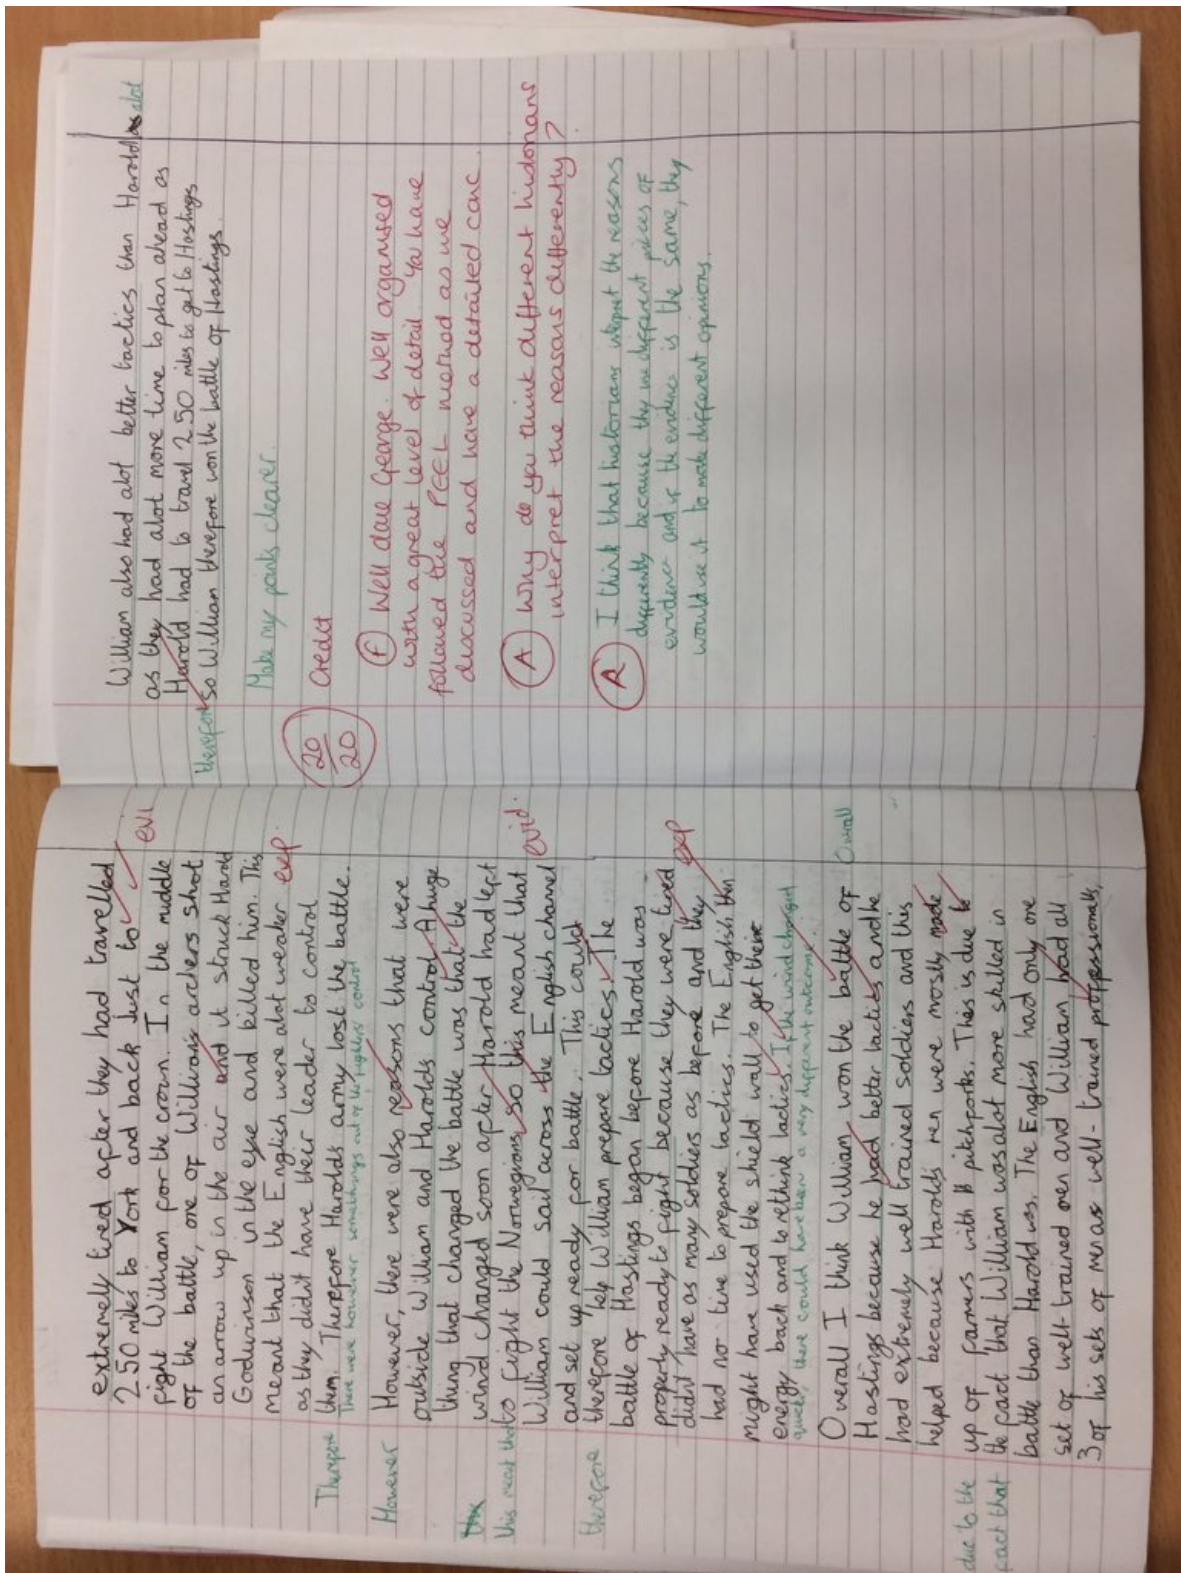 extremely tired after they had travelled
250 miles to York and back just to evi
fight William for the crown. In the middle
of the battle, one of Williams archers shot
an arrow up in the air and it stuck Harold
Godwinson in the eye and killed him. This
meant that the English were alot weaker exp.
as they didn't have their leader to control
Therefore them. Therefore Harolds army lost the battle.
There were however somethings out of the fighters control
However However, there were also reasons that were
outside William and Harolds control. A huge
thing that changed the battle was that the
the wind changed soon after Harold had left
this meant that to fight the Noregions, so this meant that evid.
William could sail across the English channel
and set up ready for battle. This could
therefore therefore help William prepare tactics. The
battle of Hastings began before Harold was
properly ready to fight because they were tired exp
didn't have as many soldiers as before and they
had no time to prepare tactics. The English then
might have used the shield wall to get their
energy back and to rethink tactics. If the wind changed
quick, there could have been a very different outcome.
Overall I think William won the battle of Overall
Hastings because he had better tactics and he
had extremely well trained soldiers and this
helped because Harolds men were mostly made
due to the up of farmers with pitchforks. This is due to
fact that the fact that William was alot more skilled in
battle than Harold was. The English had only one
set of well trained men and William had all
3 of his sets of men as well-trained professionals,
William also had alot better tactics than Harold alot
as they had alot more time to plan ahead as
Harold had to travel 250 miles to get to Hastings
therefore so William therefore won the battle of Hastings.
Make my points clearer.
20/20 Credit
F Well done George. Well organised
with a great level of detail. You have
followed the PEEL method as we
discussed and have a detailed conc.
A Why do you think different historians
interpret the reasons differently?
R I think that historians intepret the reasons
differently because they use different pieces of
evidence and if the evidence is the same, they
would use it to make different opinions.